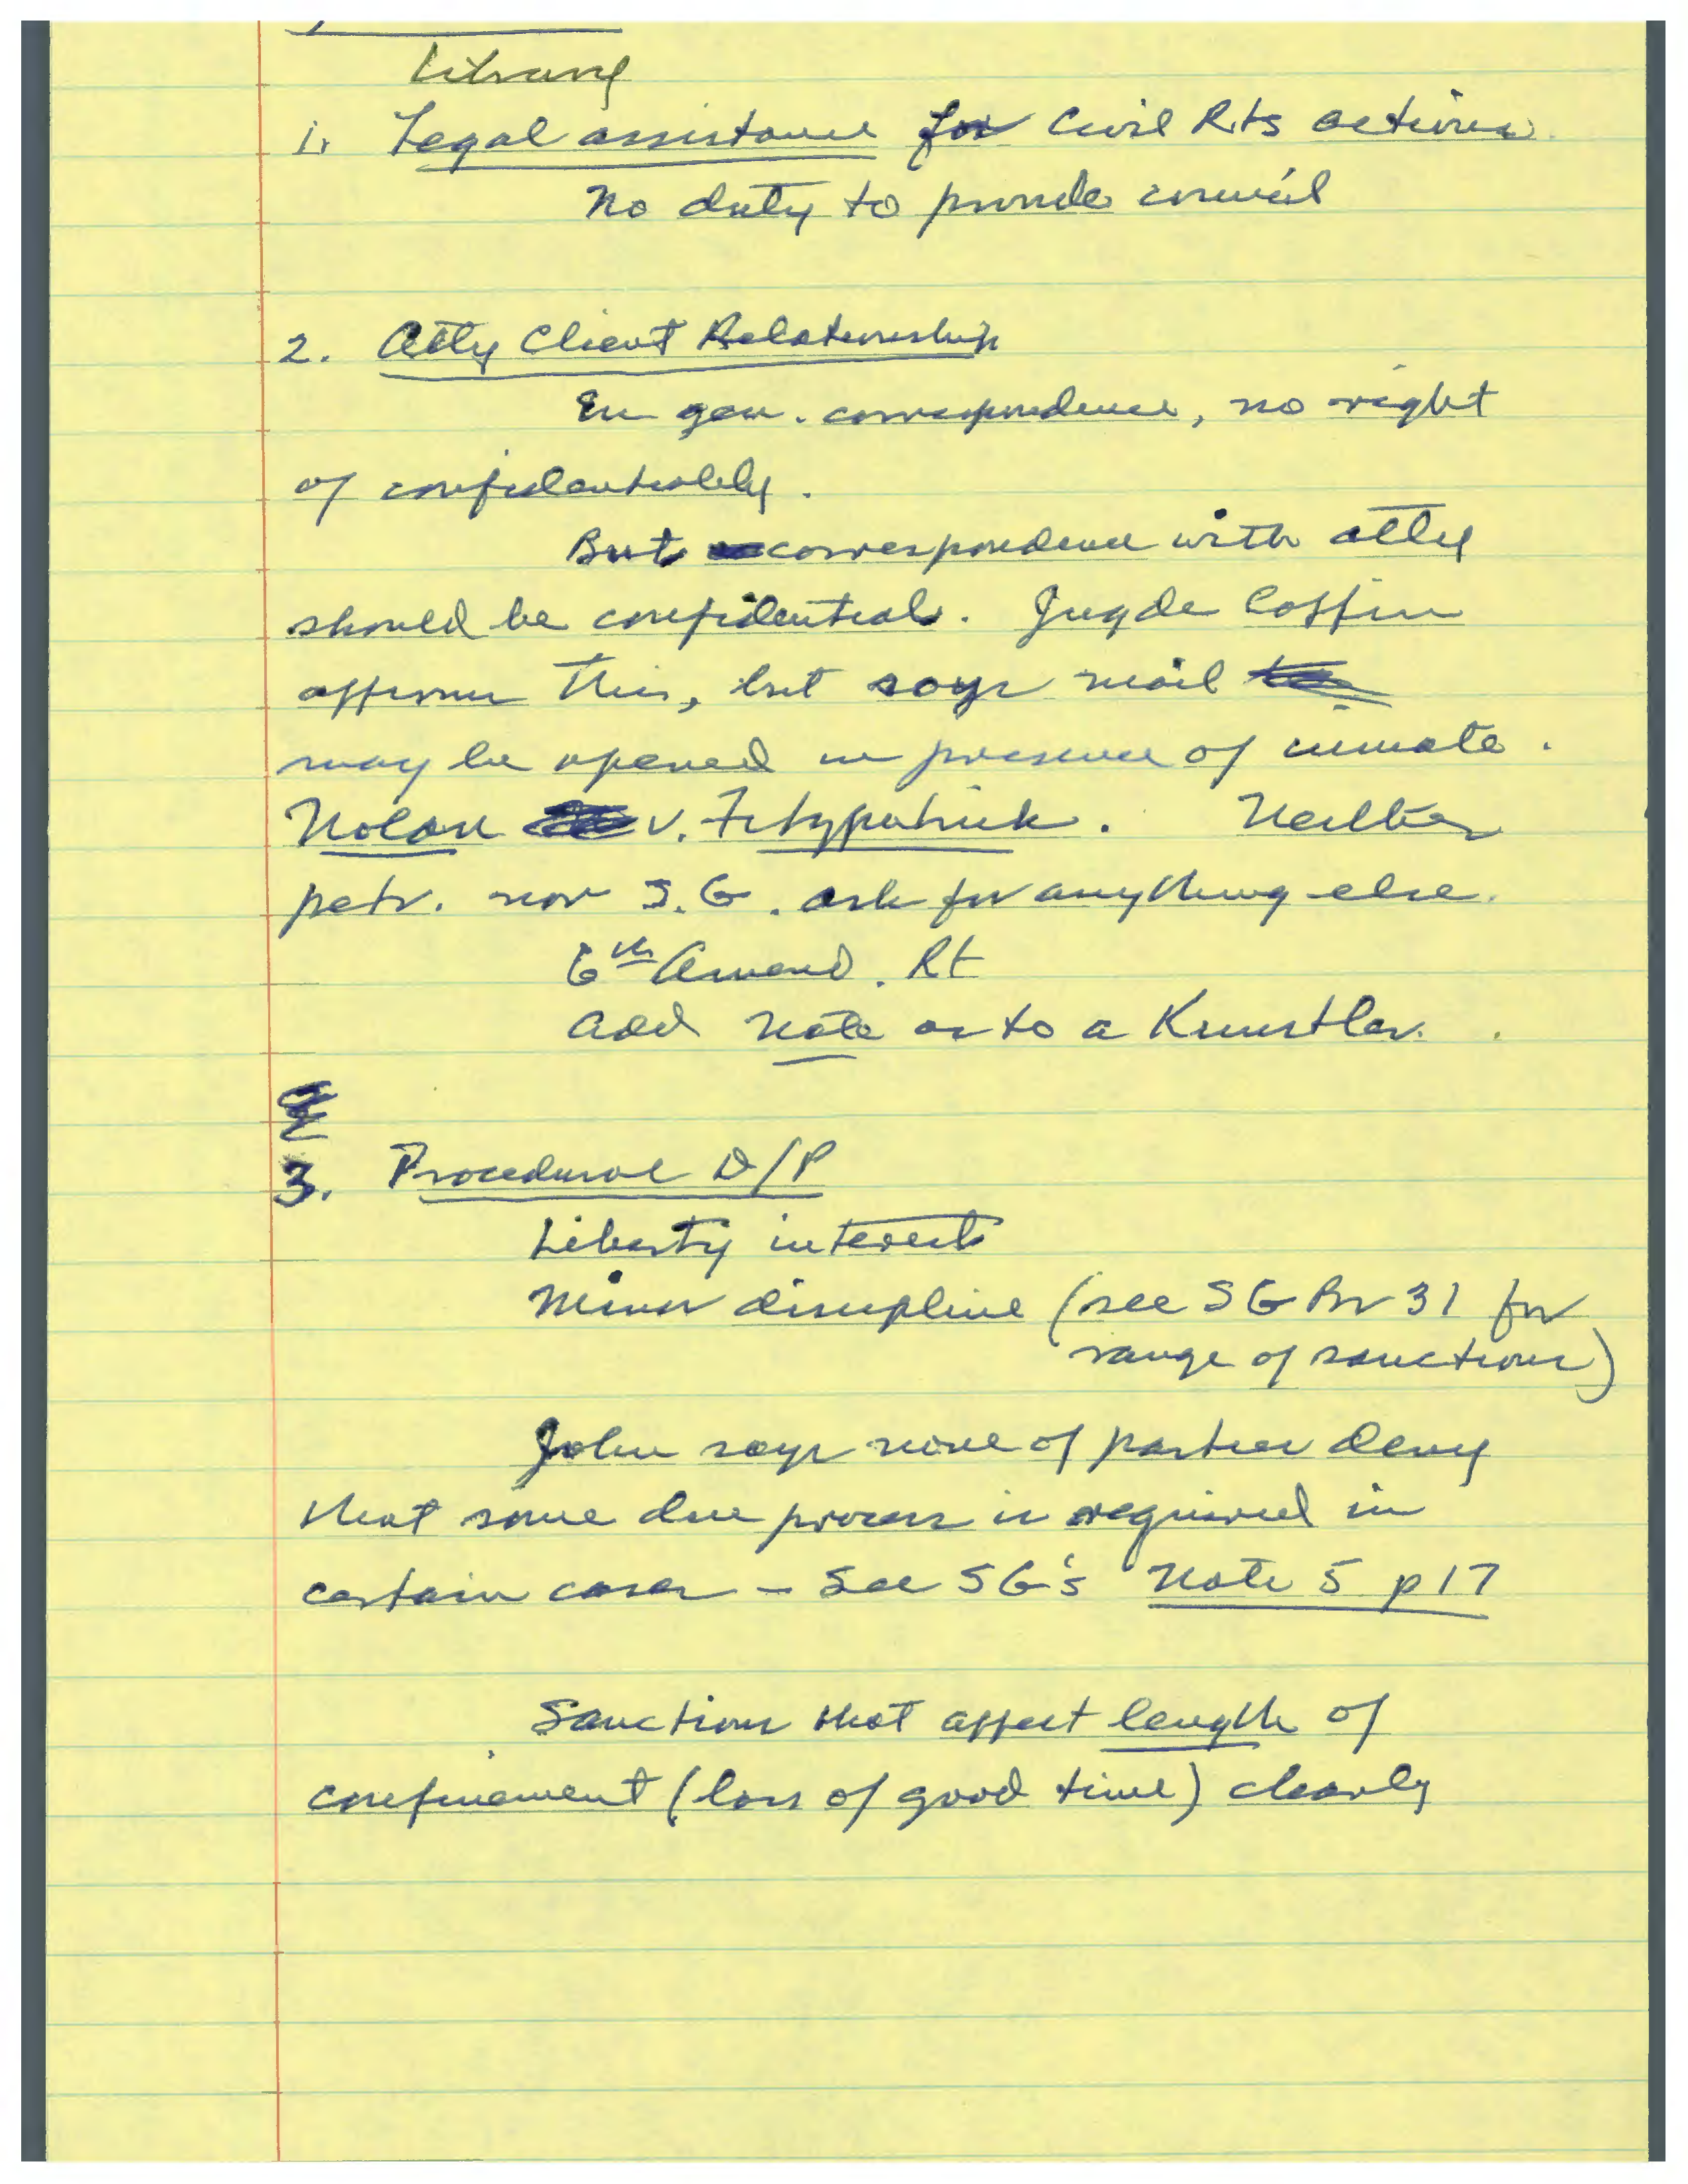 Library
1. Legal assistance for Civil Rts actions.
No duty to provide counsel
2. Atty Client Relationship
In gen. correspondence, no right
of confidentiality.
But correspondence with atty
should be confidential. Jugde Coffin
affirms this, but says mail
may be opened in presence of inmate.
Nolan v. Fitzpatrick. Neither
petr. nor S.G. ask for anything else.
6th Amend. Rt
Add note as to a Kunstler.
3. Procedural D/P
Liberty interest
Minor discipline (see SG Br 31 for
range of sanctions)
John says none of parties deny
that some due process is required in
certain cases - See SG's Note 5 p 17
Sanctions that affect length of
confinement (loss of good time) clearly